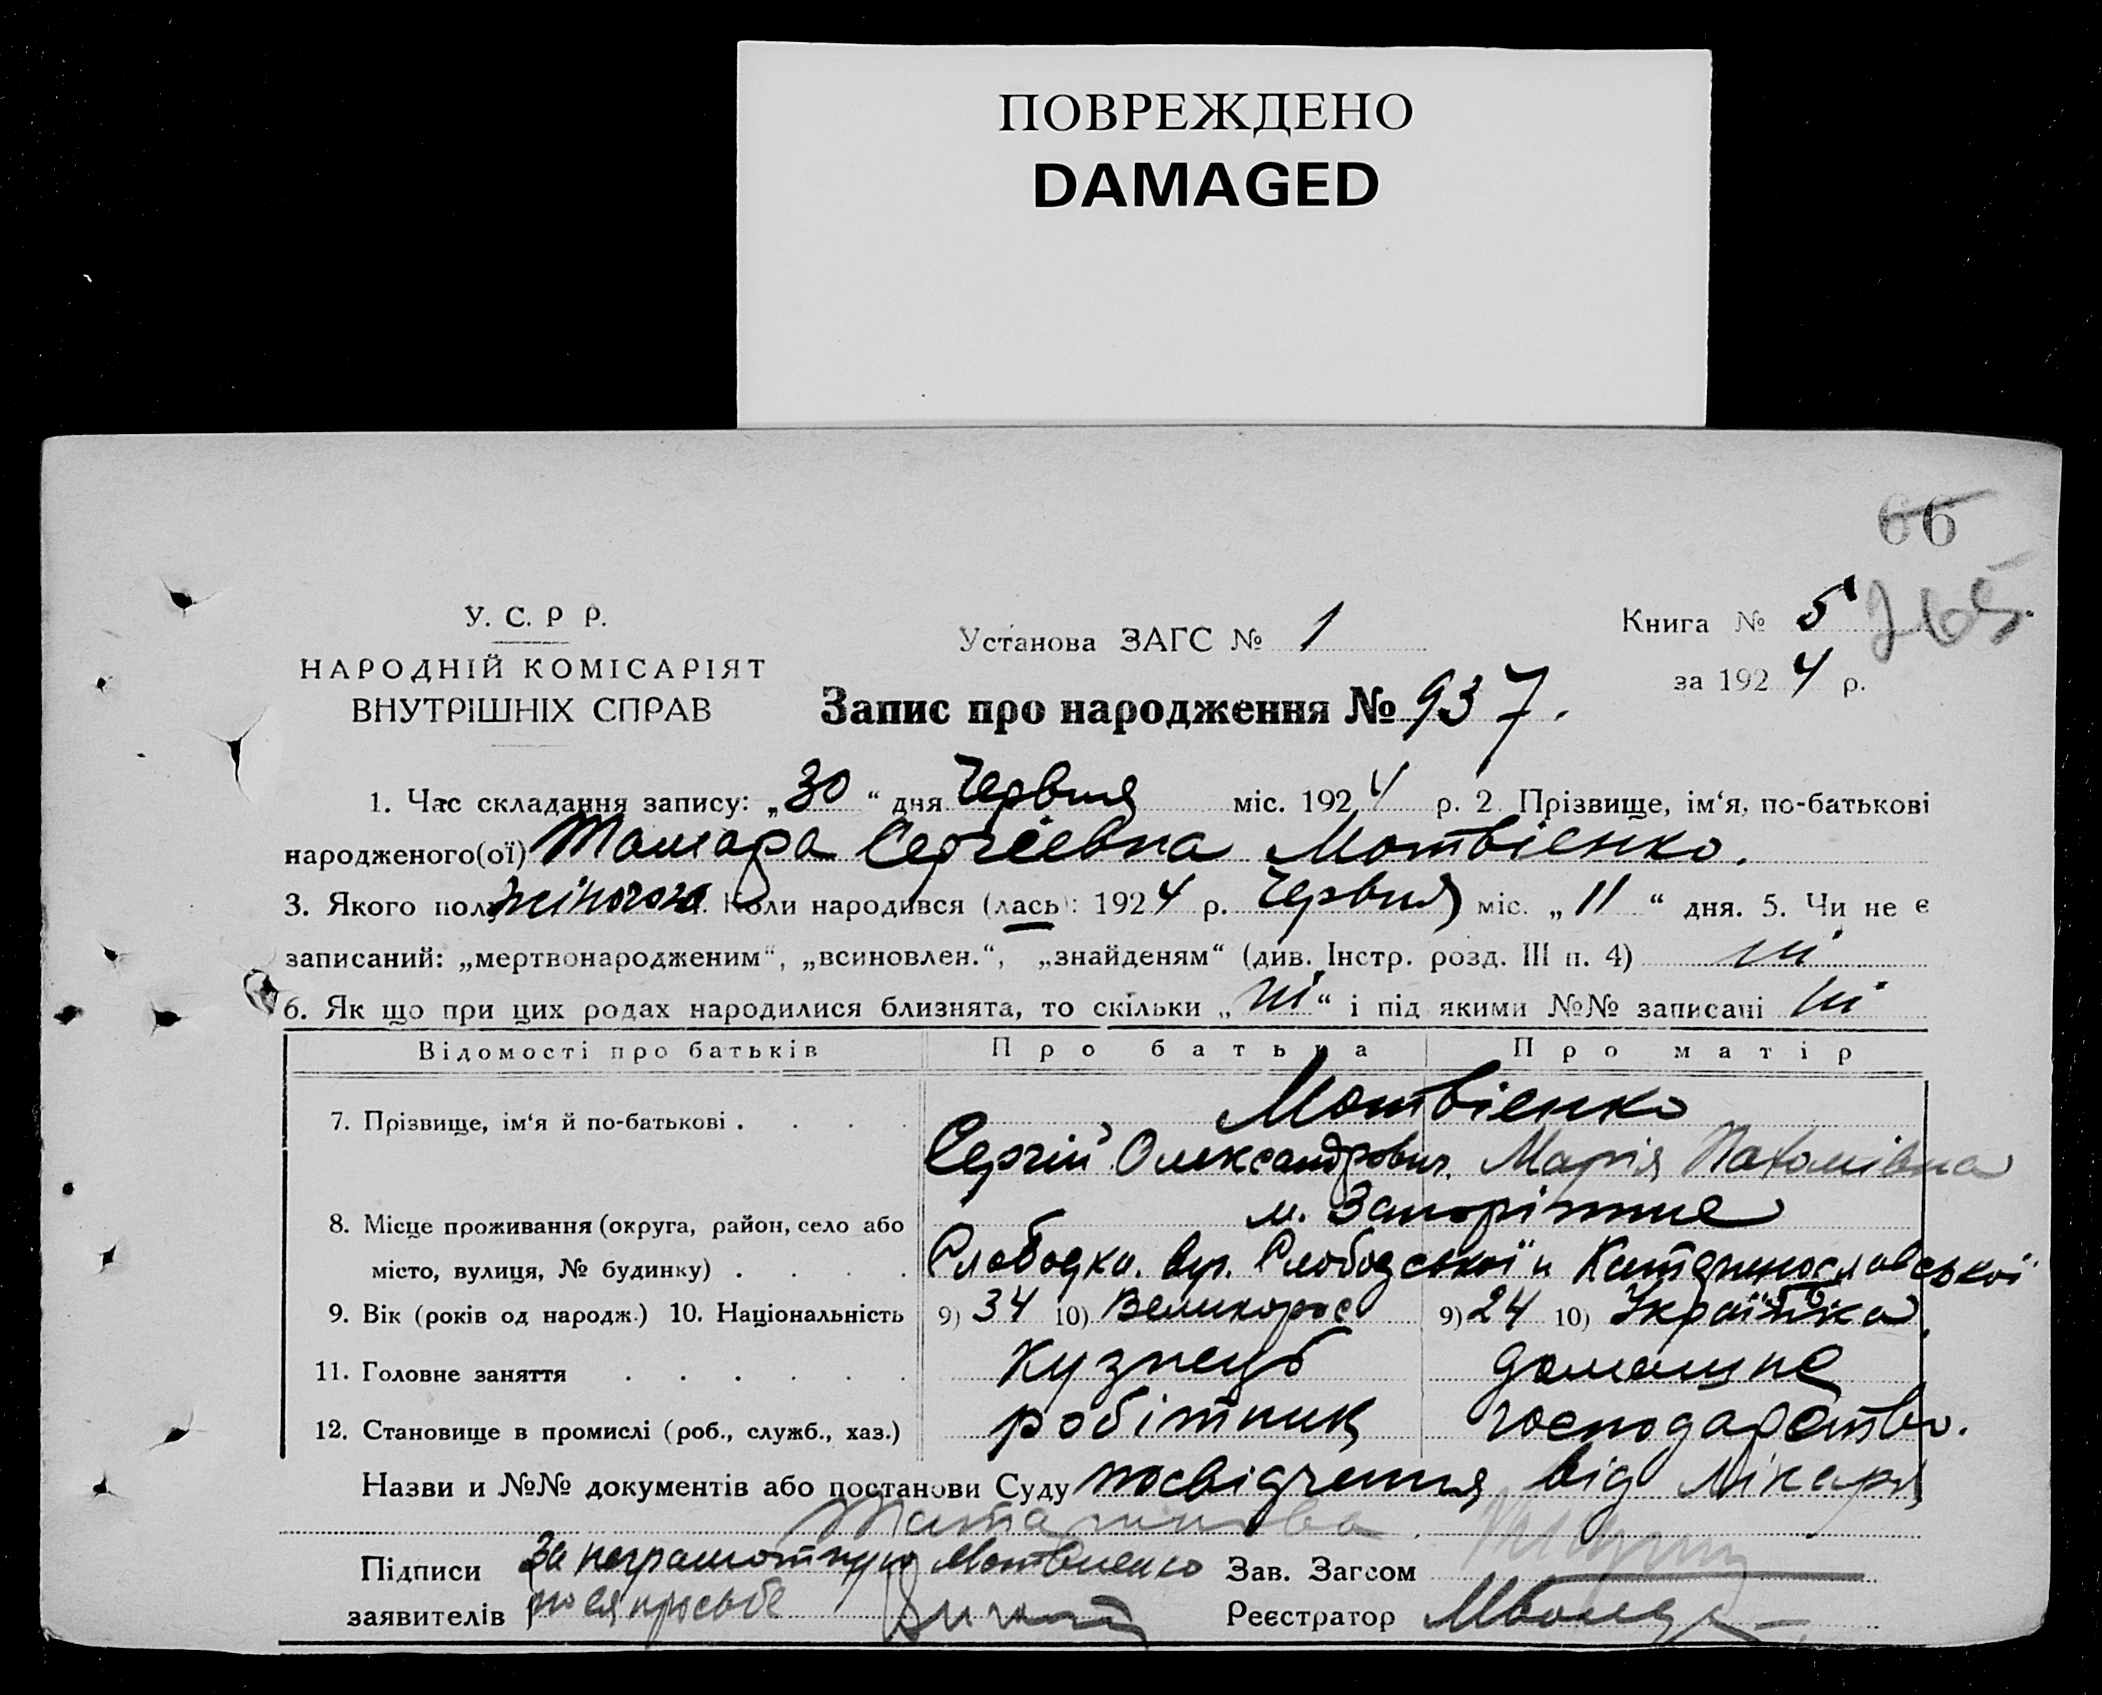 ПОВРЕЖДЕНО
DAMAGED
66
265
У. С. Р Р.
НАРОДНІЙ КОМІСАРІЯТ
ВНУТРІШНІХ СПРАВ
Установа ЗАГС № 1
Книга № 5
за 1924 р.
Запис про народження № 937.
1. Час складання запису: „30“ дня Червня міс. 1924 р. 2. Прізвище, ім‘я, по-батькові
народженого(ої) Тамара Сергіевна Мотвіенко.
3. Якого полу жіночого. Коли народився (лась): 1924 р. Червня міс. „11“ дня. 5. Чи не є
записаний: „мертвонародженим“, „всиновлен.“, „знайденям“ (див. Інстр. розд. III п. 4) ні
6. Як що при цих родах народилися близнята, то скільки „ні“ і під якими №№ записані ні
Відомості про батьків Про батька Про матір
Мотвіенко
7. Прізвище, ім‘я й по-батькові . . . .
Сергій Олександрович Марія Пахомівна
м. Запоріжже
8. Місце проживання (округа, район, село або
місто, вулиця, № будинку) . . . .
Слободка. вул. Слободської и Катеринославської
9. Вік (років од народж.) 10. Національність 9) 34 10) Великорос 9) 24 10) Українка
11. Головне заняття . . . . . . Кузнець домашне
12. Становище в промислі (роб., служб., хаз.) робітник господарство.
Назви и №№ документів або постанови Суду посвідчення від лікаря
Підписи За неграмотную Мотвиенко Зав. Загсом
заявителів по ея просьбе Реєстратор